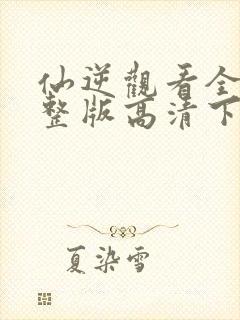 仙逆觀看全
整版高清下
夏染雪